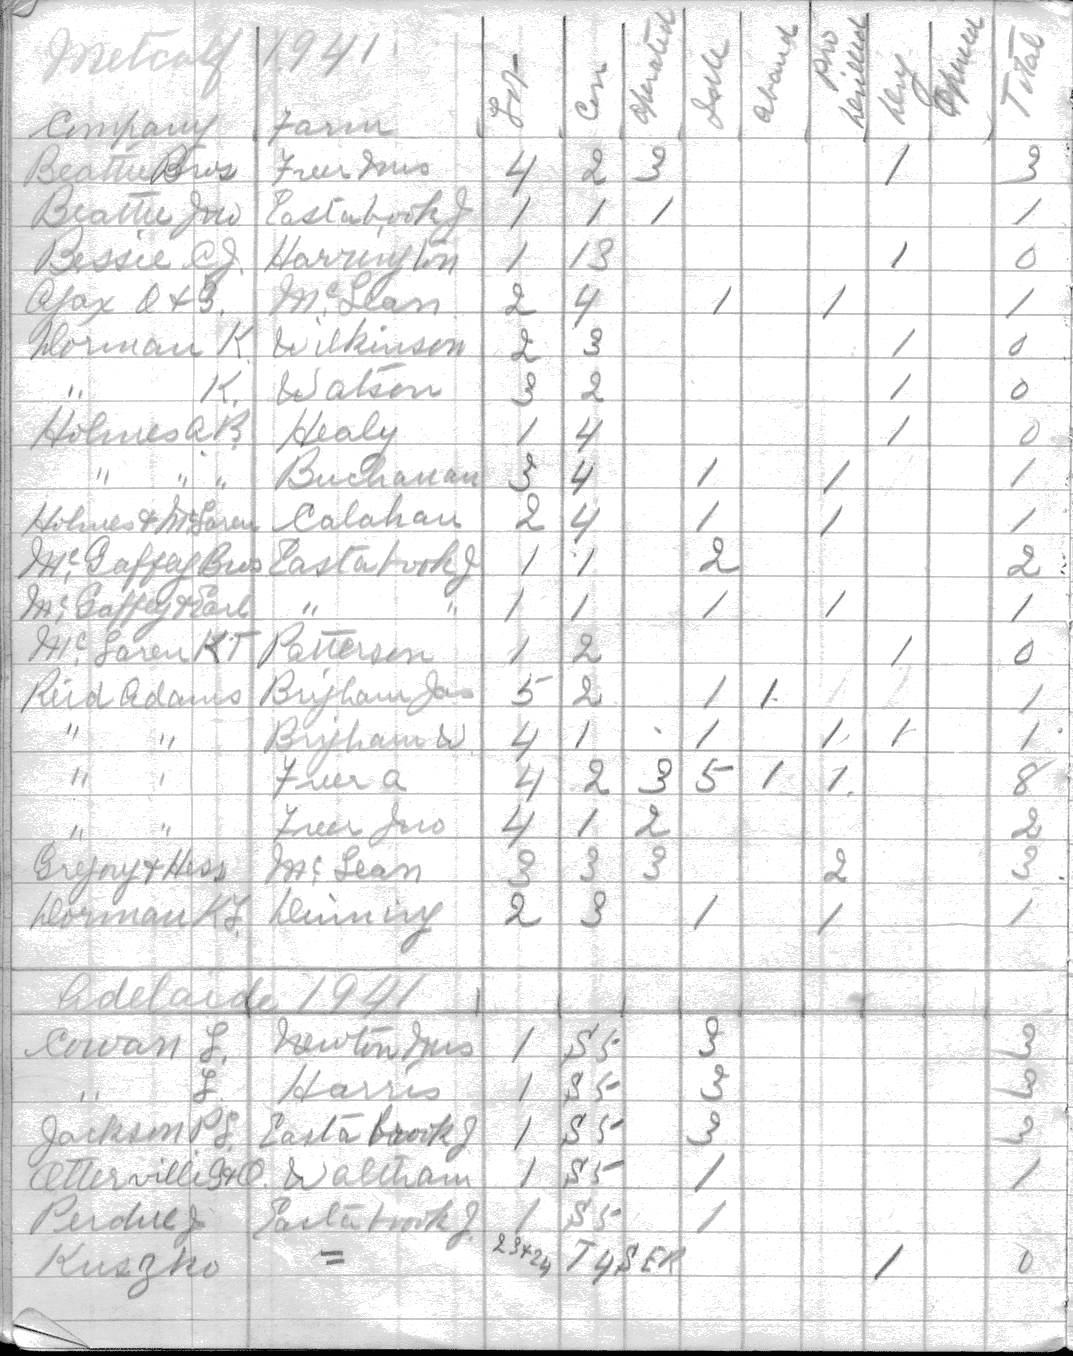 Metcalf 1941
Company Farm Lot Con Operated Idle Aband Pro Drilled Dry Total
Beattie Bros Freer Jno 4 2 3 1 3
Beattie Jno Eastabrook J 1 1 1 1
Bessie A.J. Harrington 1 13 1 0
Ajax O + G. McLean 2 4 1 1 1
Dorman K. Wilkinson 2 3 1 0
" K. Watson 3 2 1 0
Holmes A.B. Healy 1 4 1 0
" " " Buchanan 3 4 1 1 1
Holmes & McLaren Calahan 2 4 1 1 1
McGaffey Bros Eastabrook J 1 1 2 2
McGaffey & Earl " " 1 1 1 1 1
McLaren KT Patterson 1 2 1 0
Reid Adams Brigham Jas 5 2 1 1 1
" " Brigham W 4 1 1 1 1 1
" " Freer A 4 2 3 5 1 1 8
" " Freer Jno 4 1 2 2
Gregory & Hess McLean 3 3 3 2 3
Dorman K.J. Dinning 2 3 1 1 1
Adelaide 1941
Cowan L. Newton Jno 1 S5 3 3
" L. Harris 1 S5 3 3
Jackson P.L. Eastabrook J 1 S5 3 3
Otterville G+O. Waltham 1 S5 1 1
Perdue J Eastabrook J. 1 S5 1
Kuszko = 23+24 T4SER 1 0